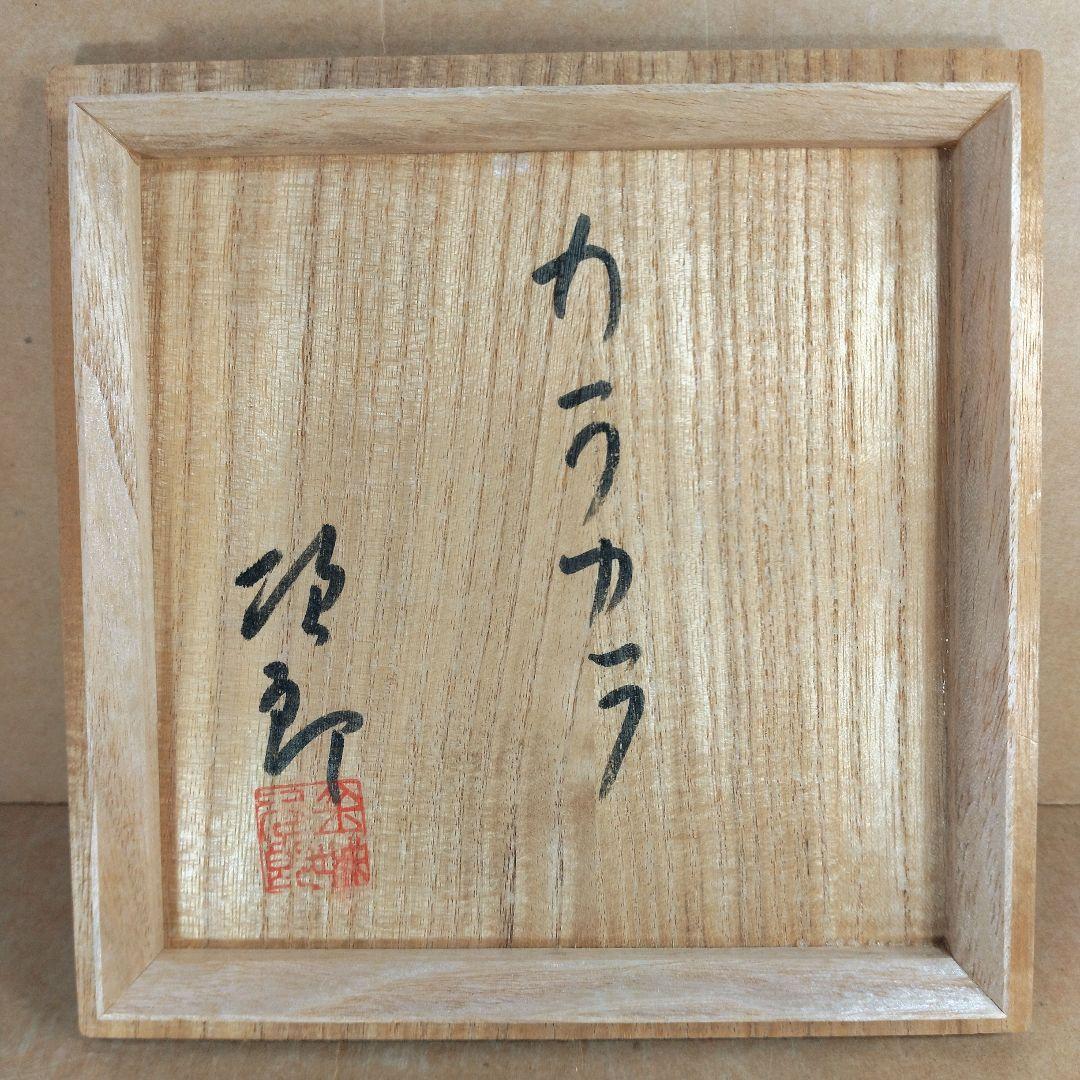 カラカラ
次郎